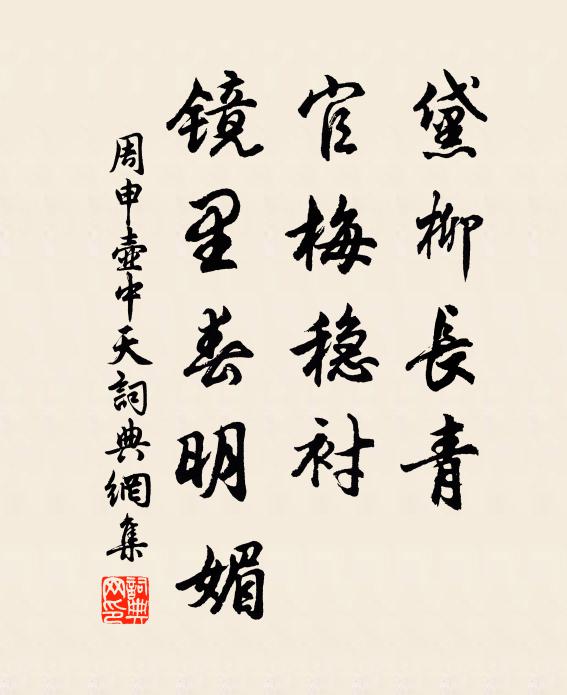 黛柳長青
官梅稳衬
镜里春明媚
周申壷中天詞典網集
詞典網印